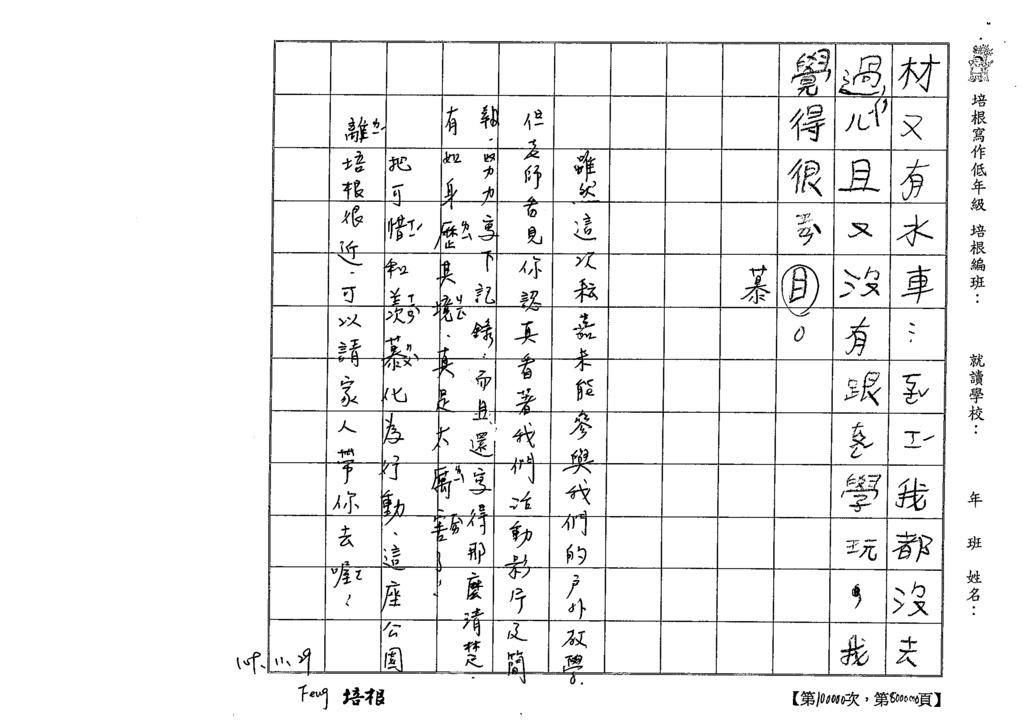 培根寫作低年級 培根編班： 就讀學校： 年 班 姓名：
材又有水車…ㄓㄜㄒㄧ我都沒去
過，心ㄌㄧˇ且又沒有跟ㄊㄨㄥ學玩，我
覺得很ㄒㄧㄢˋ目。
慕
雖然這次耘嘉未能參與我們的戶外教學。
但老師看見你認真看著我們活動影片及簡
報，努力寫下記錄，而且還寫得那麼清楚，
有如身歷其境，真是太厲害了！
把可惜和羨慕化為行動，這座公園
離培根很近，可以請家人帶你去喔！
109.11.29
Feng 培根
【第100000次，第800000頁】